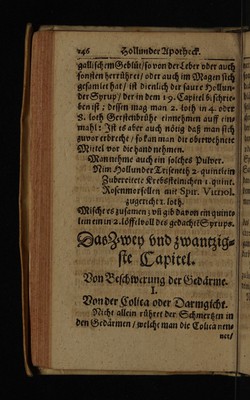 146 Hollunder Apotheck.
gallischem Geblüt/ so von der Leber oder auch
sonsten herrühret/ oder auch im Magen sich
gesamlet hat/ ist dienlich der saure Hollun-
der Syrup/ der in dem 19. Capitel beschrie-
ben ist; dessen mag man 2. loth in 4. oder
8. loth Gerstenbrühe einnehmen auff ein-
mahl: Ist es aber auch nötig daß man sich
zuvor erbreche/ so kan man die oberwehnete
Mittel vor die hand nehmen.
Man nehme auch ein solches Pulver.
Nim Hollunder Trisenth 2. quintlein
Zubereitete Krebssteinichen 1. quint.
Rosenmorsellen mit Spir. Vitriol.
zugericht 1. loth.
Mischt es zusamen/ uñ gib davon ein quint-
lein em in 2. löffel voll des gedachtē Syrups.
Das Zwey vnd zwantzig-
ste Capitel.
Von Beschwerung der Gedärme.
I.
Von der Colica oder Darmgicht.
Nicht allein rühret der Schmertzen in
den Gedärmen/ welche man die Colica nen-
net/